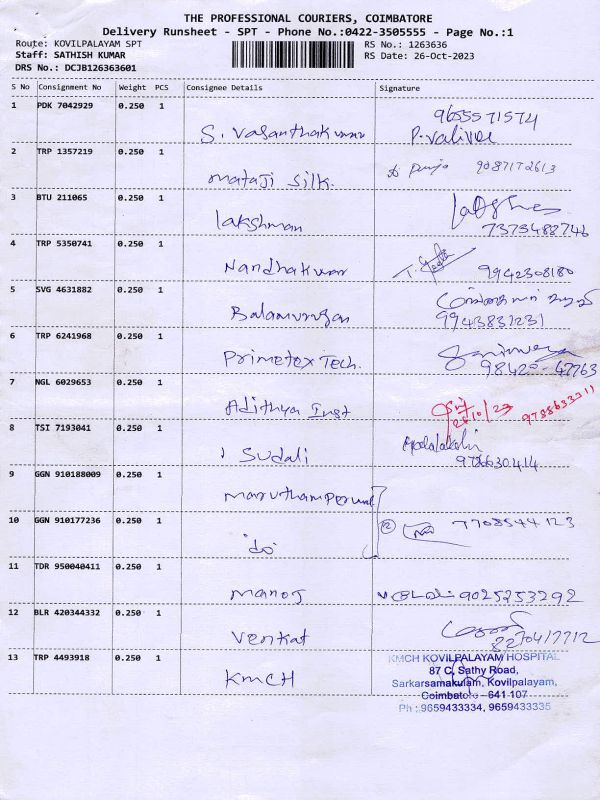 THE PROFESSIONAL COURIERS, COIMBATORE
Delivery Runsheet - SPT - Phone No.:0422-3505555 - Page No.:1
Route: KOVILPALAYAM SPT RS No.: 1263636
Staff: SATHISH KUMAR RS Date: 26-Oct-2023
DRS No.: DCJB126363601
S No Consignment No Weight PCS Consignee Details Signature
1 PDK 7042929 0.250 1 S. Vasanthakumar 9655571574
2 TRP 1357219 0.250 1 mataji silk. 9087172613
3 BTU 211065 0.250 1 lakshman 7373488746
4 TRP 5350741 0.250 1 Nandhakumar 9942308180
5 SVG 4631882 0.250 1 Balamurugan 9943831231
6 TRP 6241968 0.250 1 Primetex Tech. 98420-47763
7 NGL 6029653 0.250 1 Adithya Inst 26/10/23 9788633311
8 TSI 7193041 0.250 1 Sudali
9 GGN 910188009 0.250 1 Maruthamperumal
10 GGN 910177236 0.250 1 "do" 7708544123
11 TDR 950040411 0.250 1 Manoj 9025253292
12 BLR 420344332 0.250 1 Venkat
13 TRP 4493918 0.250 1 KMCH
KMCH KOVILPALAYAM HOSPITAL
87 C, Sathy Road,
Sarkarsamakulam, Kovilpalayam,
Coimbatore - 641 107
Ph :9659433334, 9659433335